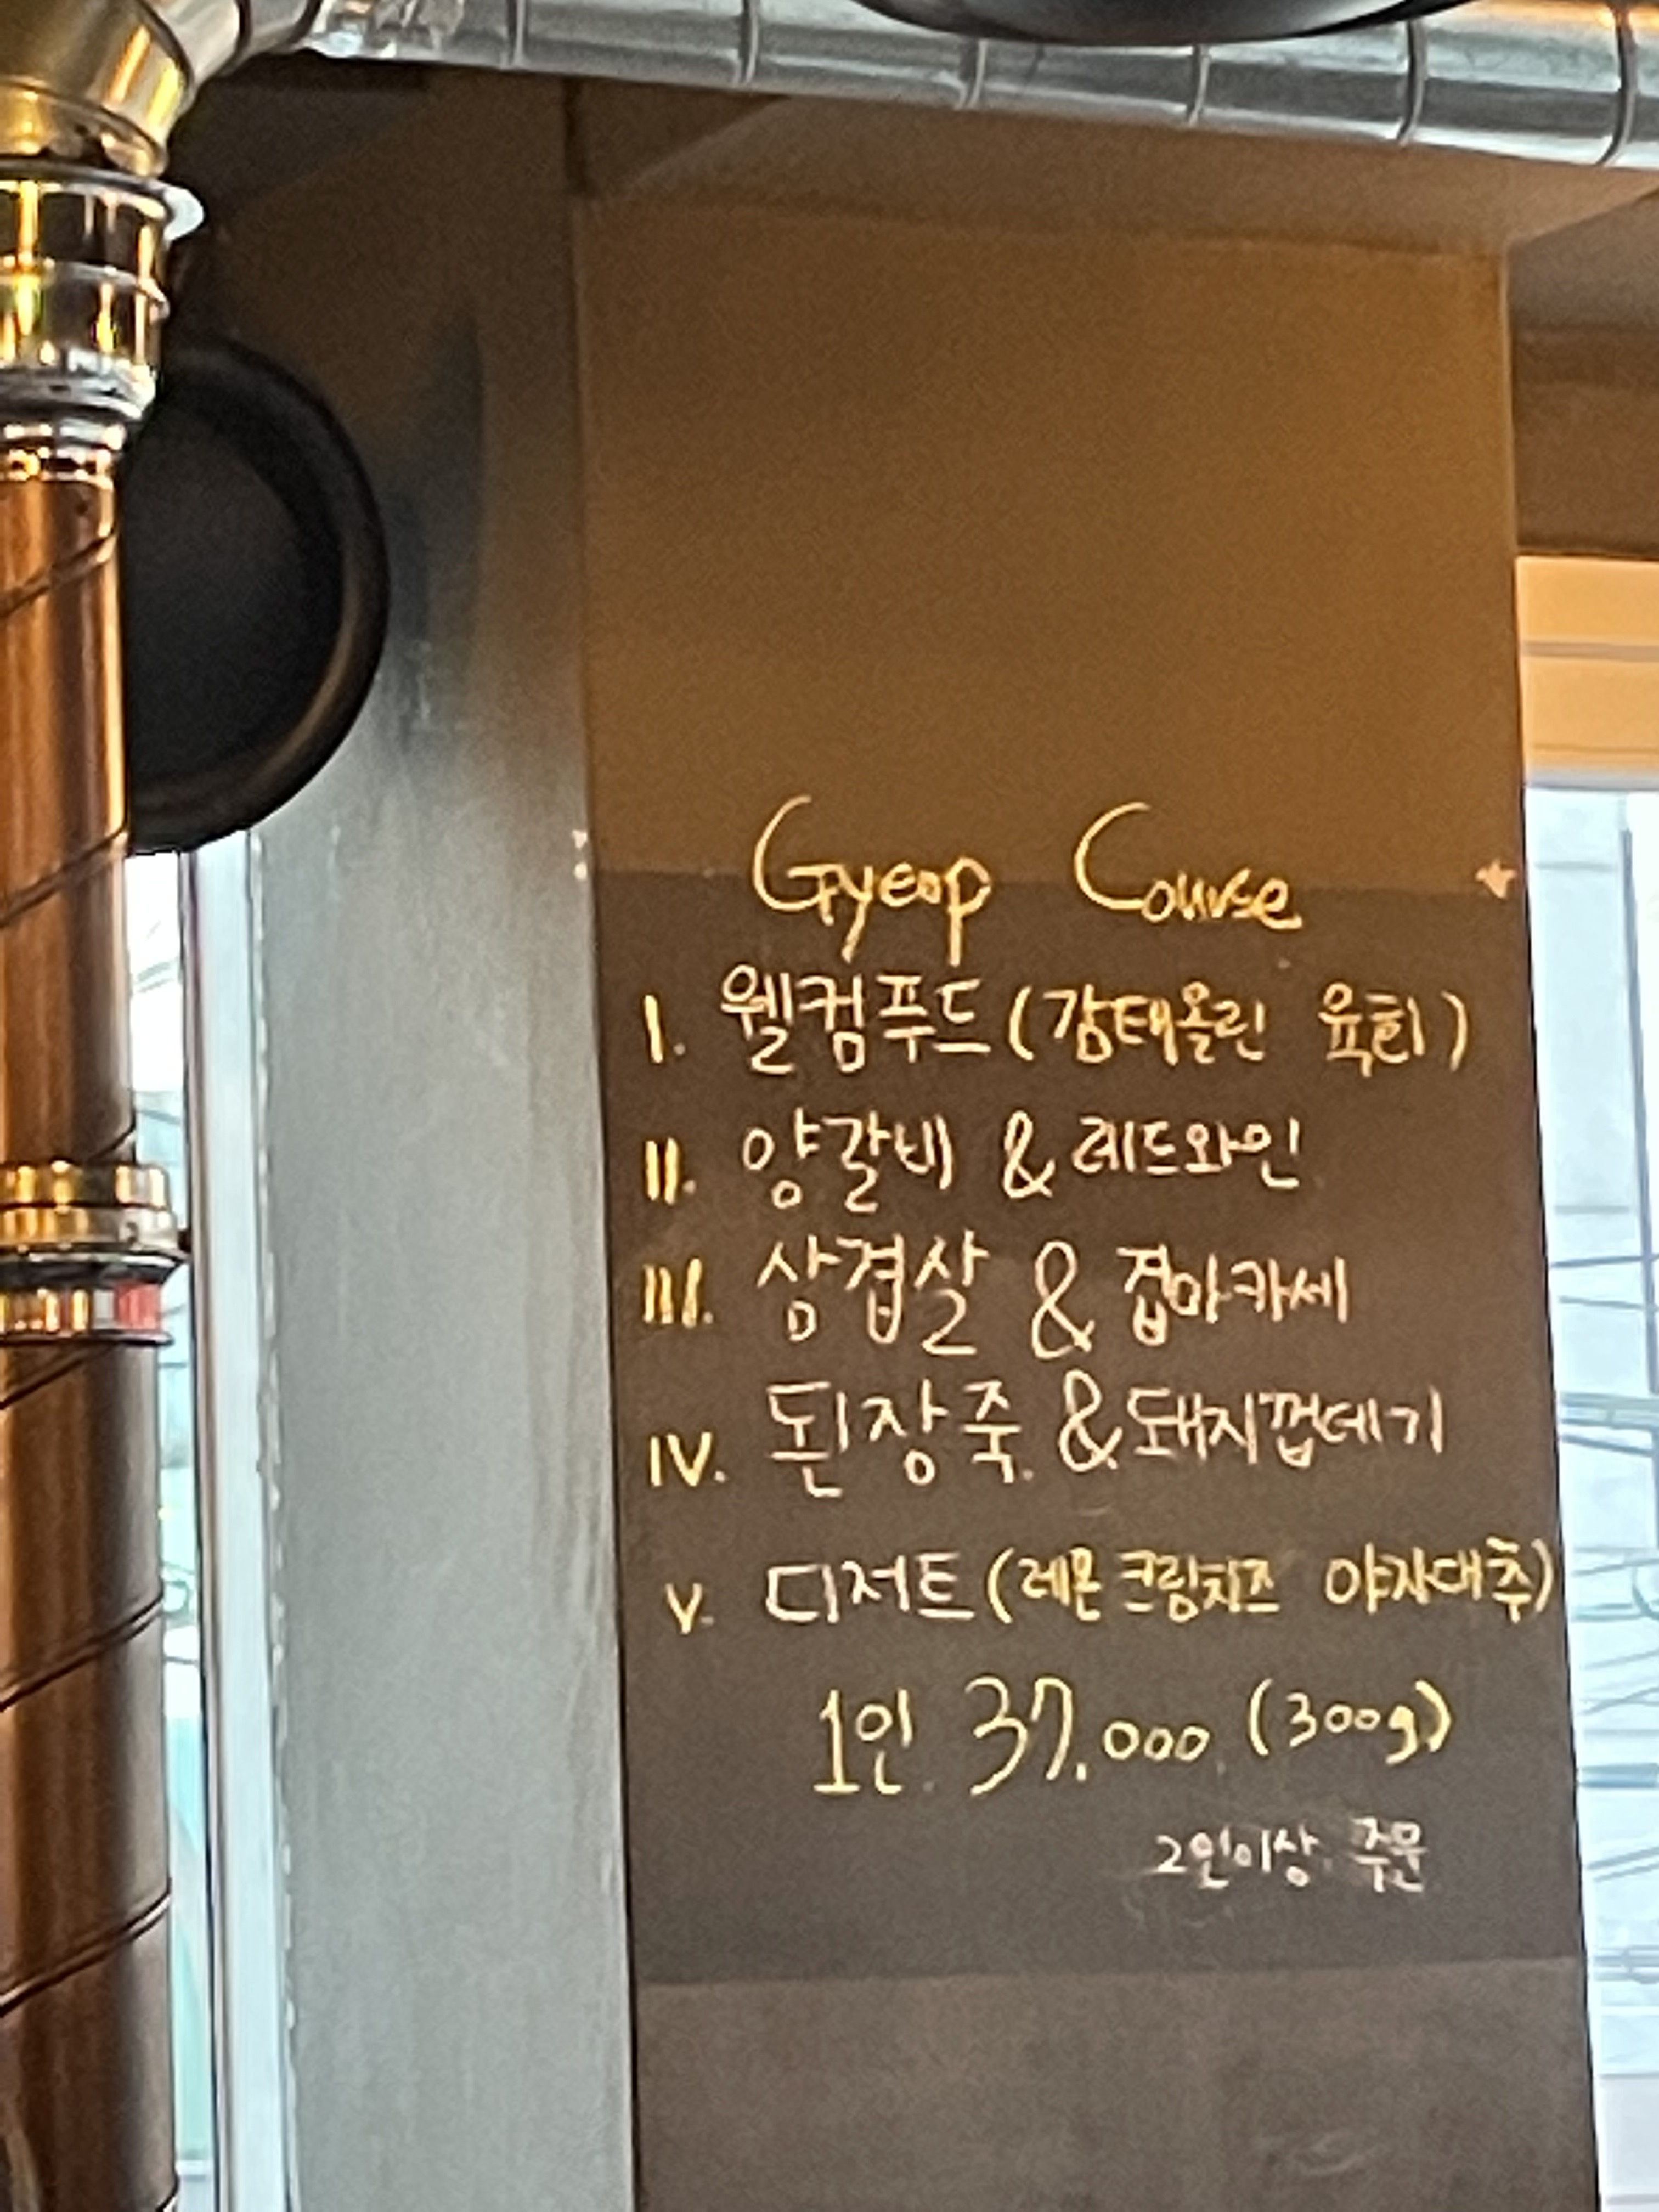 Gyeop Course
I. 웰컴푸드 (감태올린 육회)
II. 양갈비 & 레드와인
III. 삼겹살 & 겹마카세
IV. 된장죽 & 돼지껍데기
V. 디저트 (레몬 크림치즈 야자대추)
1인 37,000 (300g)
2인이상 주문